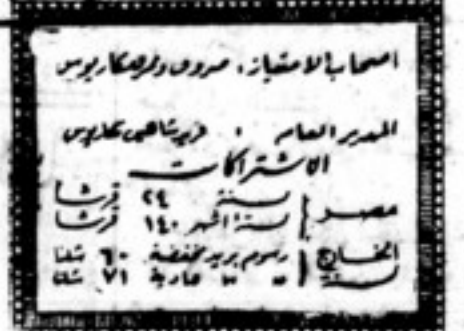 اصحاب الامتياز: صروف ونمر ومكاريوس
المدير العام : فريد شاهين مكاريوس
الاشتراكات
مصر { سنة ٢٤٠ قرشا
لستة اشهر ١٤٠ قرشا
الخارج لسنة { رسوم بريد مخفضة ٦٠ شلنا
" " عادية ٧١ شلنا